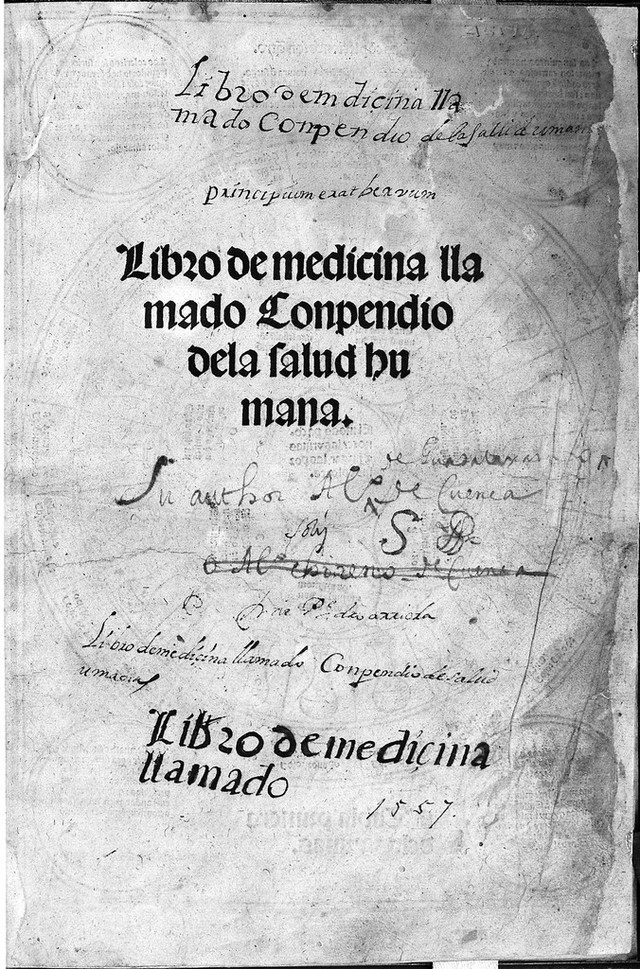 Libro de mdicina lla
mado Conpendio de la salud uman
principium erat bervum
Libro de medicina lla
mado Conpendio
dela salud hu
mana.
de Guadalaxara
Su author Alº de Cuenca
soy S
o Alº chireno de Cuenca
Libro de medicina llamado Conpendio de salud
umana
Libro de medicina
llamado
1557.